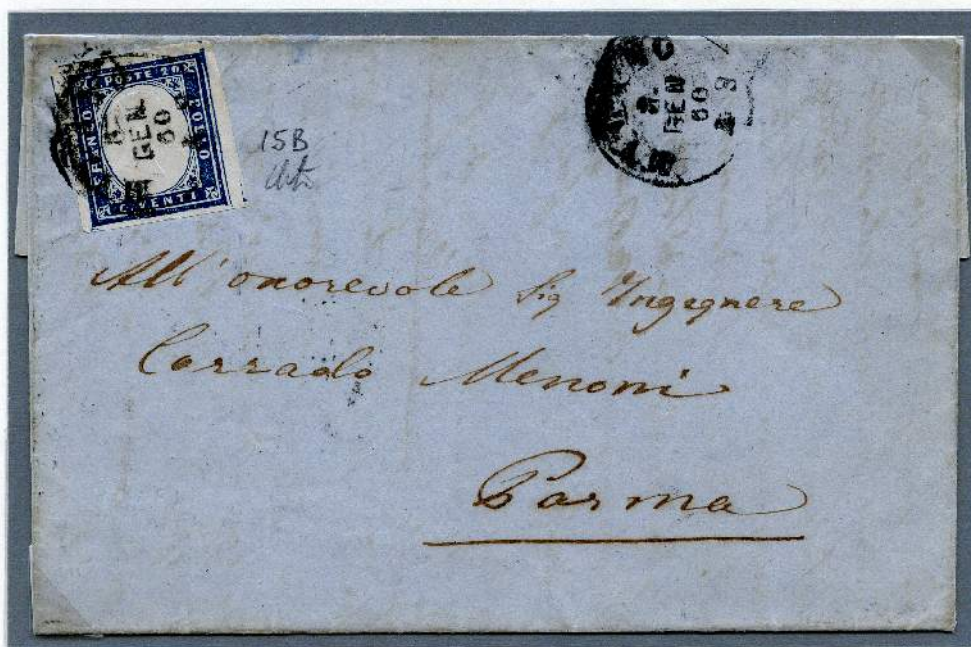 FRANCO
POSTE 20
BOLLO
C. VENTI
8.
GEN
60
15B
8.
GEN
60
All' onorevole Sig Ingegnere
Corrado Menoni
Parma